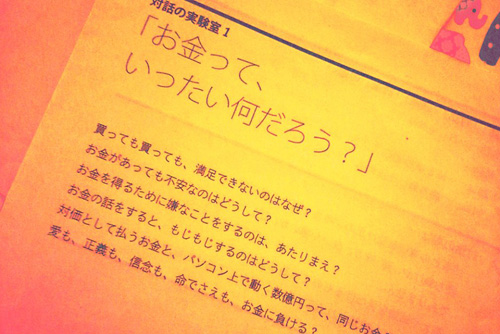 対話の実験室 1
「お金って、
いったい何だろう？」
買っても買っても、満足できないのはなぜ？
お金があっても不安なのはどうして？
お金を得るために嫌なことをするのは、あたりまえ？
お金の話をすると、もじもじするのはどうして？
対価として払うお金と、パソコン上で動く数億円って、同じお金
愛も、正義も、信念も、命でさえも、お金に負ける？